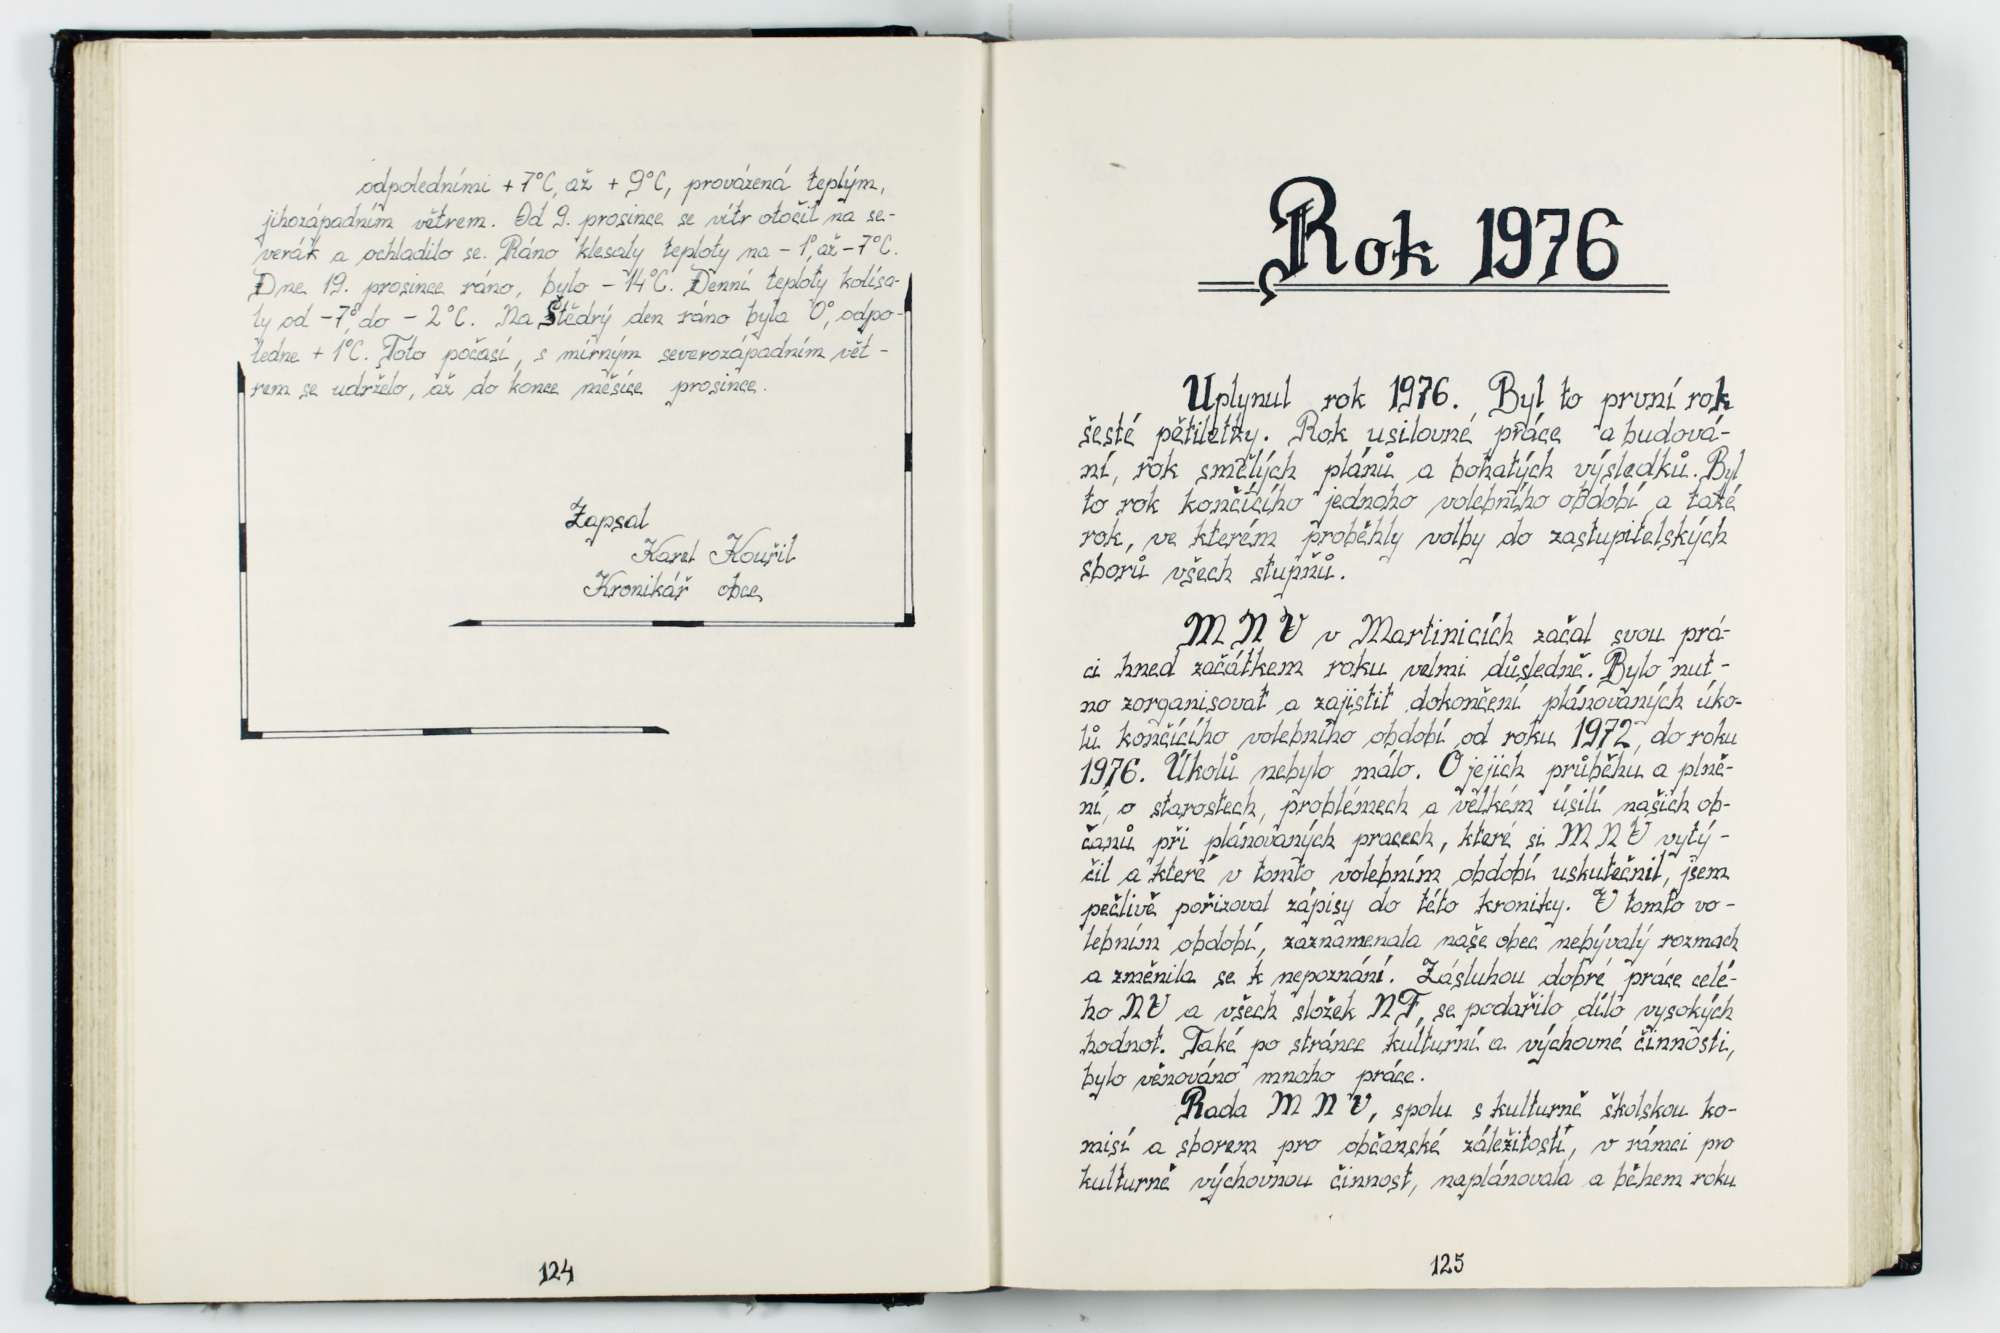 odpoledními +7°C, až +9°C, provázená teplým,
jihozápadním větrem. Od 9. prosince se vítr otočil na se-
verák a ochladilo se. Ráno klesaly teploty na -1°, až -7°C.
Dne 19. prosince ráno, bylo -14°C. Denní teploty kolísa-
ly od -7°, do -2°C. Na Štědrý den ráno byla 0°, odpo-
ledne +1°C. Toto počasí, s mírným severozápadním vět-
rem se udrželo, až do konce měsíce prosince.
Zapsal
Karel Kouřil
Kronikář obce
124
Rok 1976
Uplynul rok 1976. Byl to první rok
šesté pětiletky. Rok usilovné práce a budová-
ní, rok smělých plánů a bohatých výsledků. Byl
to rok končícího jednoho volebního období a také
rok, ve kterém proběhly volby do zastupitelských
sborů všech stupňů.
MNV v Martinicích začal svou prá-
ci hned začátkem roku velmi důsledně. Bylo nut-
no zorganisovat a zajistit dokončení plánovaných úko-
lů končícího volebního období od roku 1972, do roku
1976. Úkolů nebylo málo. O jejich průběhu a plně-
ní, o starostech, problémech a velkém úsilí našich ob-
čanů při plánovaných pracech, které si MNV vytý-
čil a které v tomto volebním období uskutečnil, jsem
pečlivě pořizoval zápisy do této kroniky. V tomto vo-
lebním období, zaznamenala naše obec nebývalý rozmach
a změnila se k nepoznání. Zásluhou dobré práce celé-
ho NV a všech složek NF, se podařilo dílo vysokých
hodnot. Také po stránce kulturní a výchovné činnosti,
bylo věnováno mnoho práce.
Rada MNV, spolu s kulturně školskou ko-
misí a sborem pro občanské záležitosti, v rámci pro
kulturně výchovnou činnost, naplánovala a během roku
125